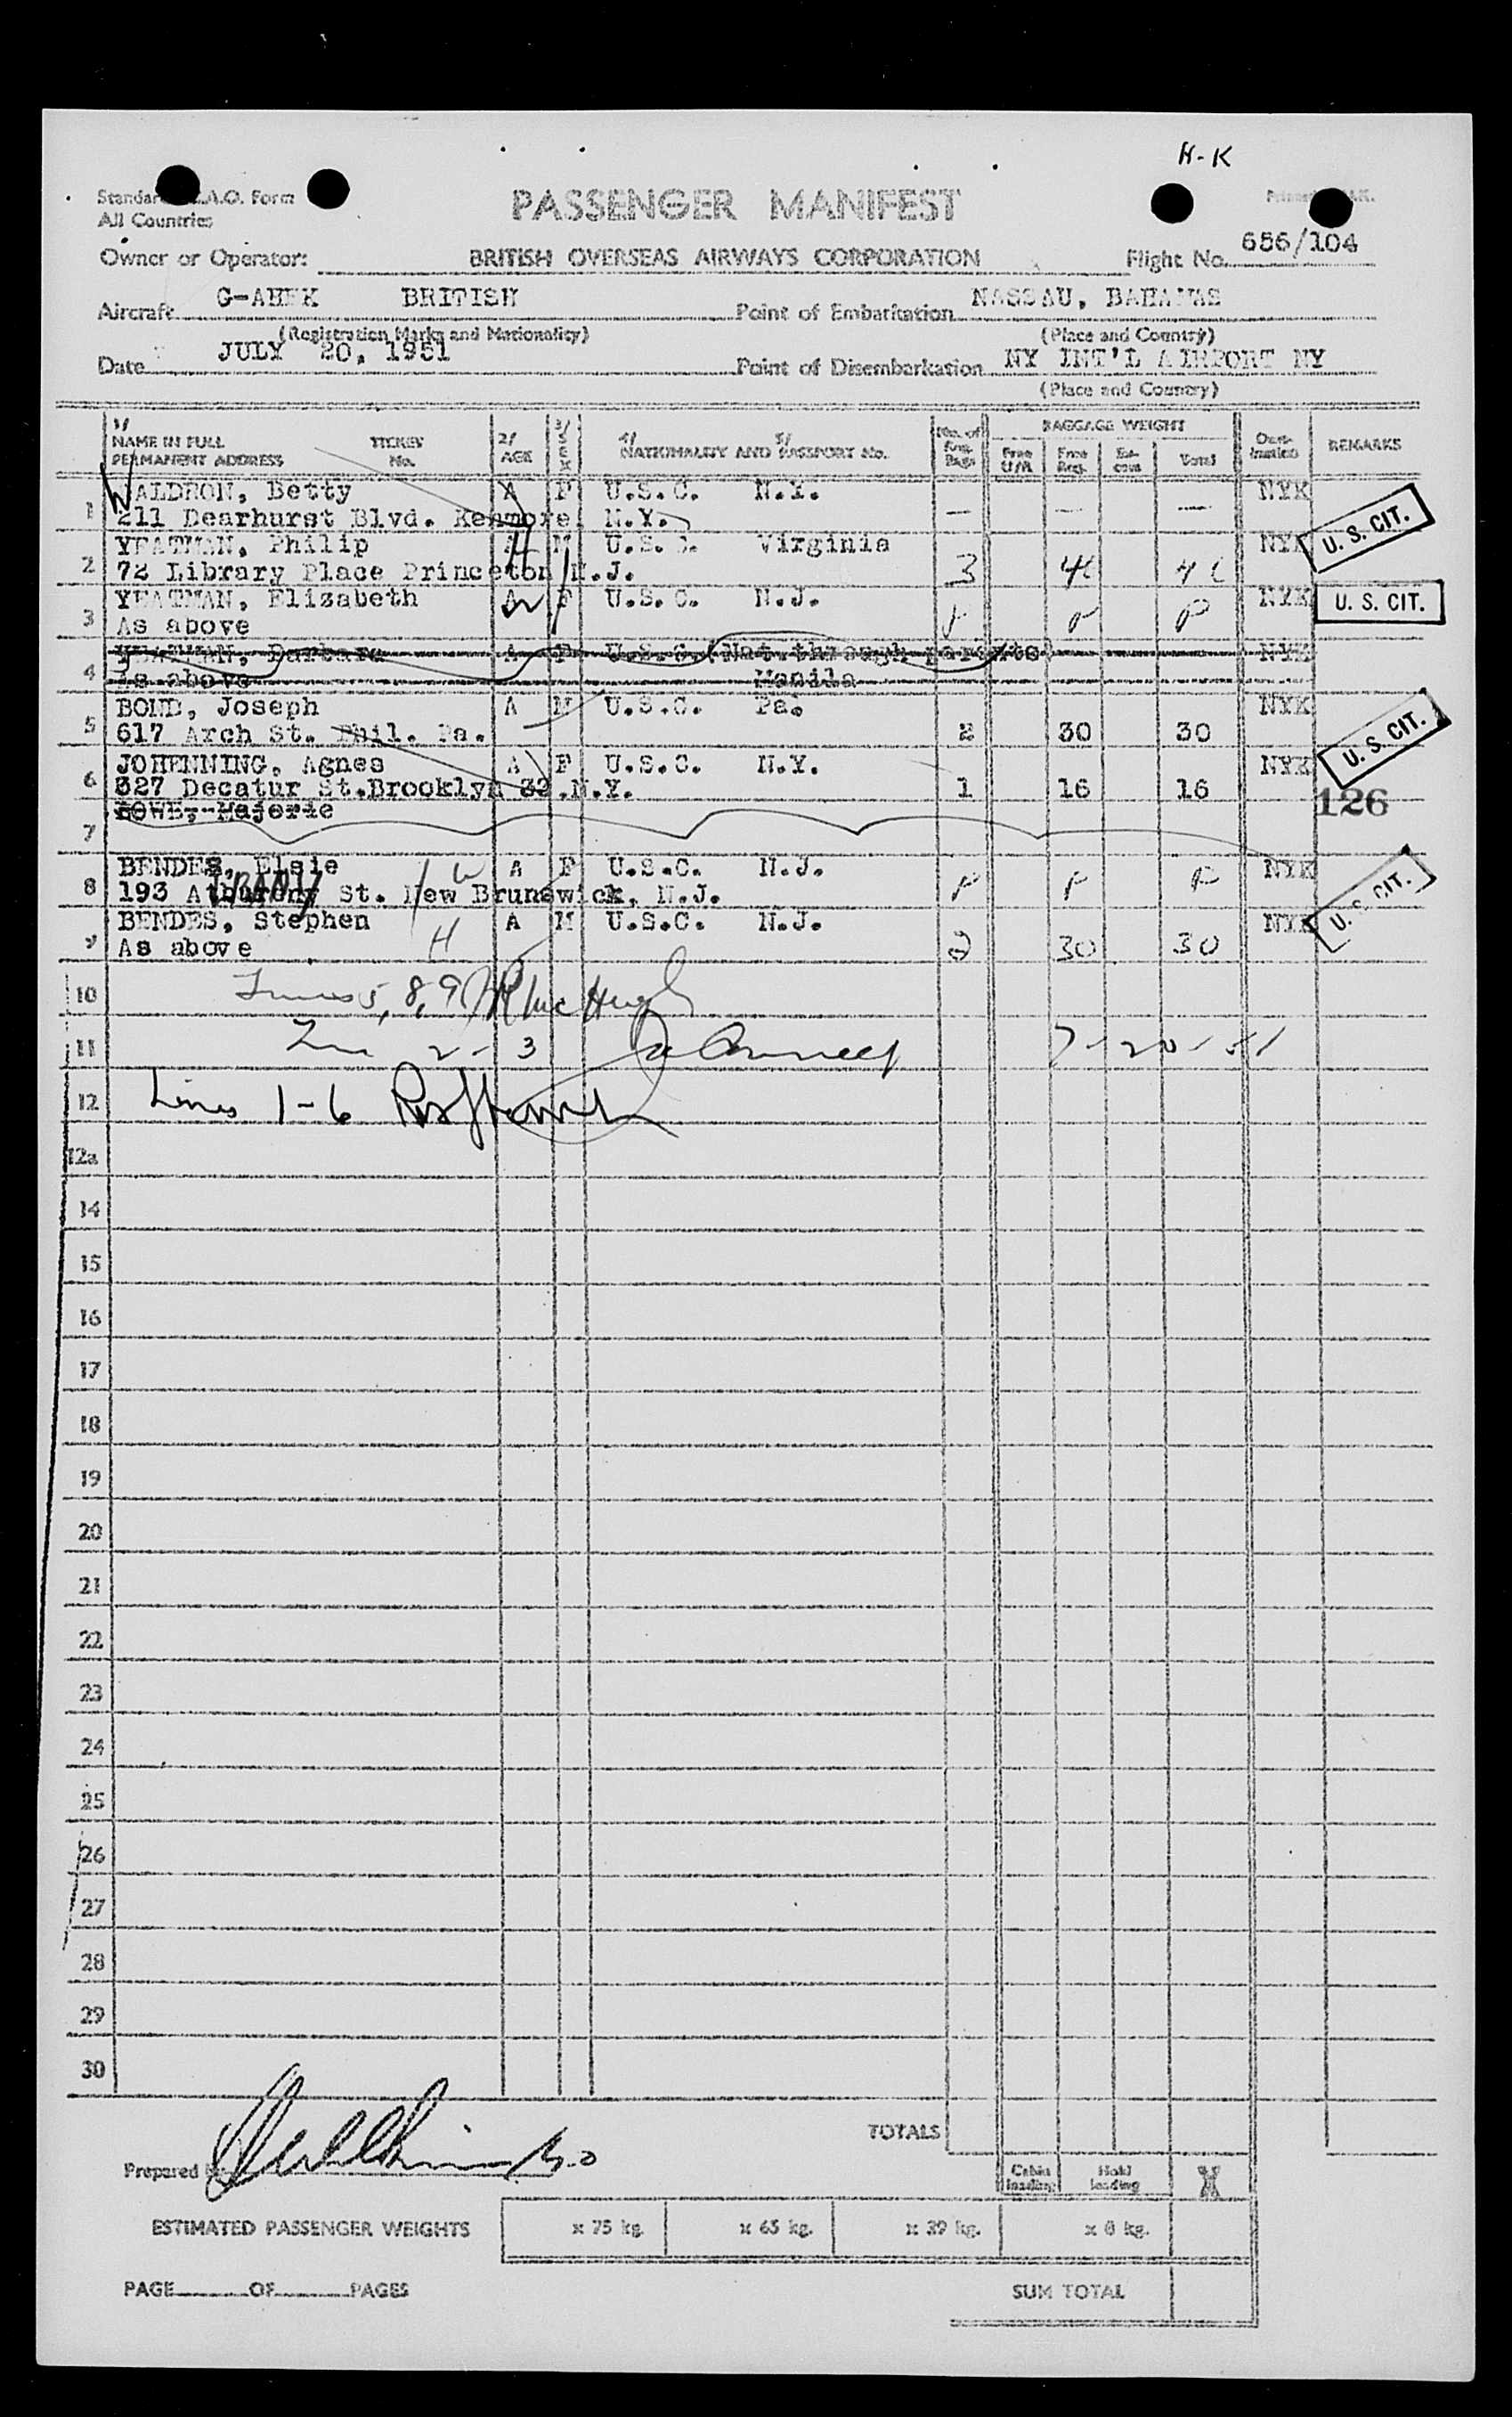 H-K
Standard A.O. Form
All Countries
PASSENGER MANIFEST
Owner or Operator: BRITISH OVERSEAS AIRWAYS CORPORATION Flight No. 656/104
Aircraft BRITISH Point of Embarkation NASSAU, BAHAMAS
(Registration Marks and Nationality) (Place and Country)
Date JULY 20, 1951 Point of Disembarkation NY INT'L AIRPORT NY
(Place and Country)
1/ NAME IN FULL PERMANENT ADDRESS TICKET No. 2/ AGE 3/ SEX 4/ NATIONALITY AND 5/ PASSPORT No. No. of Bags BAGGAGE WEIGHT Free Free Reg. Ex-cess Total Dest-ination REMARKS
1 WALDRON, Betty A F U.S.C. N.Y. — — — NYK
211 Dearhurst Blvd. Kenmore, N.Y.
U.S. CIT.
2 YEATMAN, Philip H M U.S.C. Virginia NYK
72 Library Place Princeton N.J. 3
3 YEATMAN, Elizabeth A W F U.S.C. N.J. P P P NYK U. S. CIT.
As above
4 YEATMAN, Barbara A F U.S.C. (Nat. through parents) NYK
As above Manila
5 BOND, Joseph A M U.S.C. Pa. NYK
617 Arch St. Phil. Pa. 2 30 30
U. S. CIT.
6 JOHENNING, Agnes A F U.S.C. N.Y. NYK
327 Decatur St. Brooklyn 33, N.Y. 1 16 16
126
7 ROWE, Majorie
8 BENDES, Elsie W A F U.S.C. N.J. P P P NYK
193 St. New Brunswick, N.J.
U.S. CIT.
9 BENDES, Stephen H A M U.S.C. N.J. NYK
As above 2 30 30
10 Lines 5, 8, 9 McHugh
11 2 - 3 7-20-51
12 Lines 1-6
12a
14
15
16
17
18
19
20
21
22
23
24
25
26
27
28
29
30
TOTALS
Prepared by
Cabin loading Hold loading
ESTIMATED PASSENGER WEIGHTS x 75 kg. x 65 kg. x 39 kg. x 8 kg.
PAGE OF PAGES SUM TOTAL